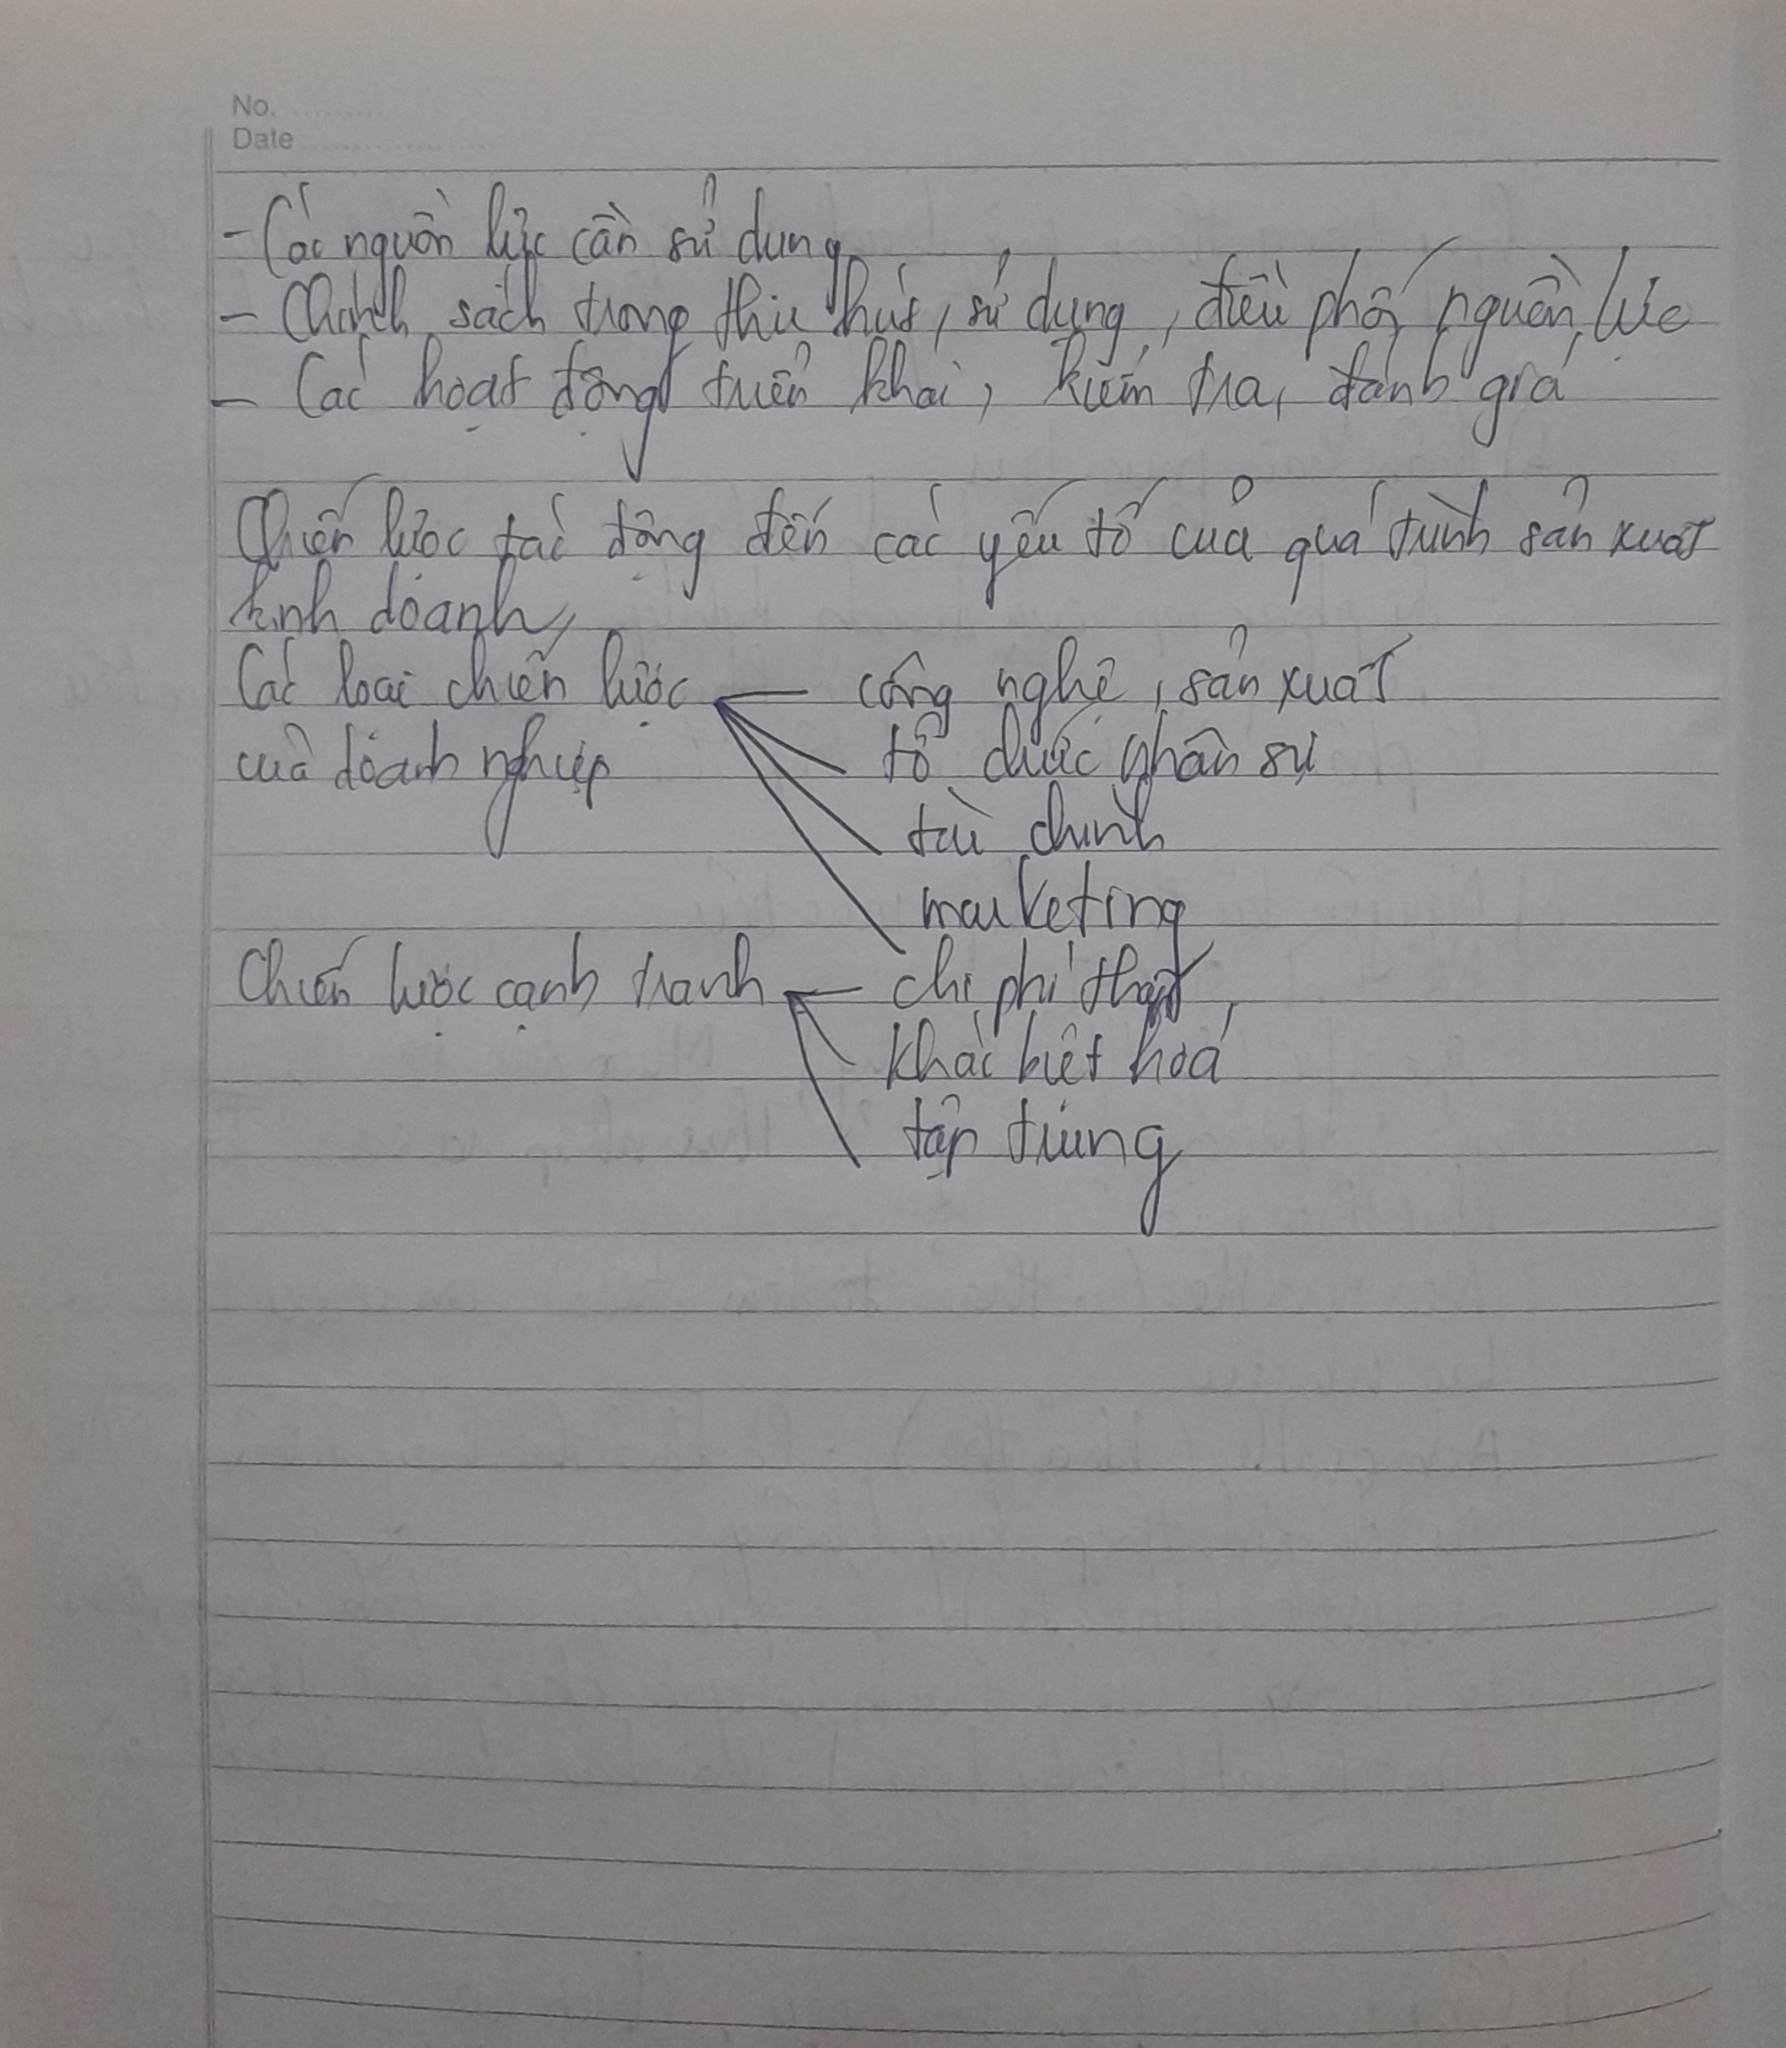 No.
Date
- Các nguồn lực cần sử dụng
- Chính sách trong thu hút, sử dụng, điều phối nguồn lực
- Các hoạt động triển khai, kiểm tra, đánh giá
Chiến lược tác động đến các yếu tố của quá trình sản xuất
kinh doanh,
Các loại chiến lược — công nghệ, sản xuất
của doanh nghiệp tổ chức nhân sự
tài chính
marketing
Chiến lược cạnh tranh — chi phí thấp,
khác biệt hoá
tập trung